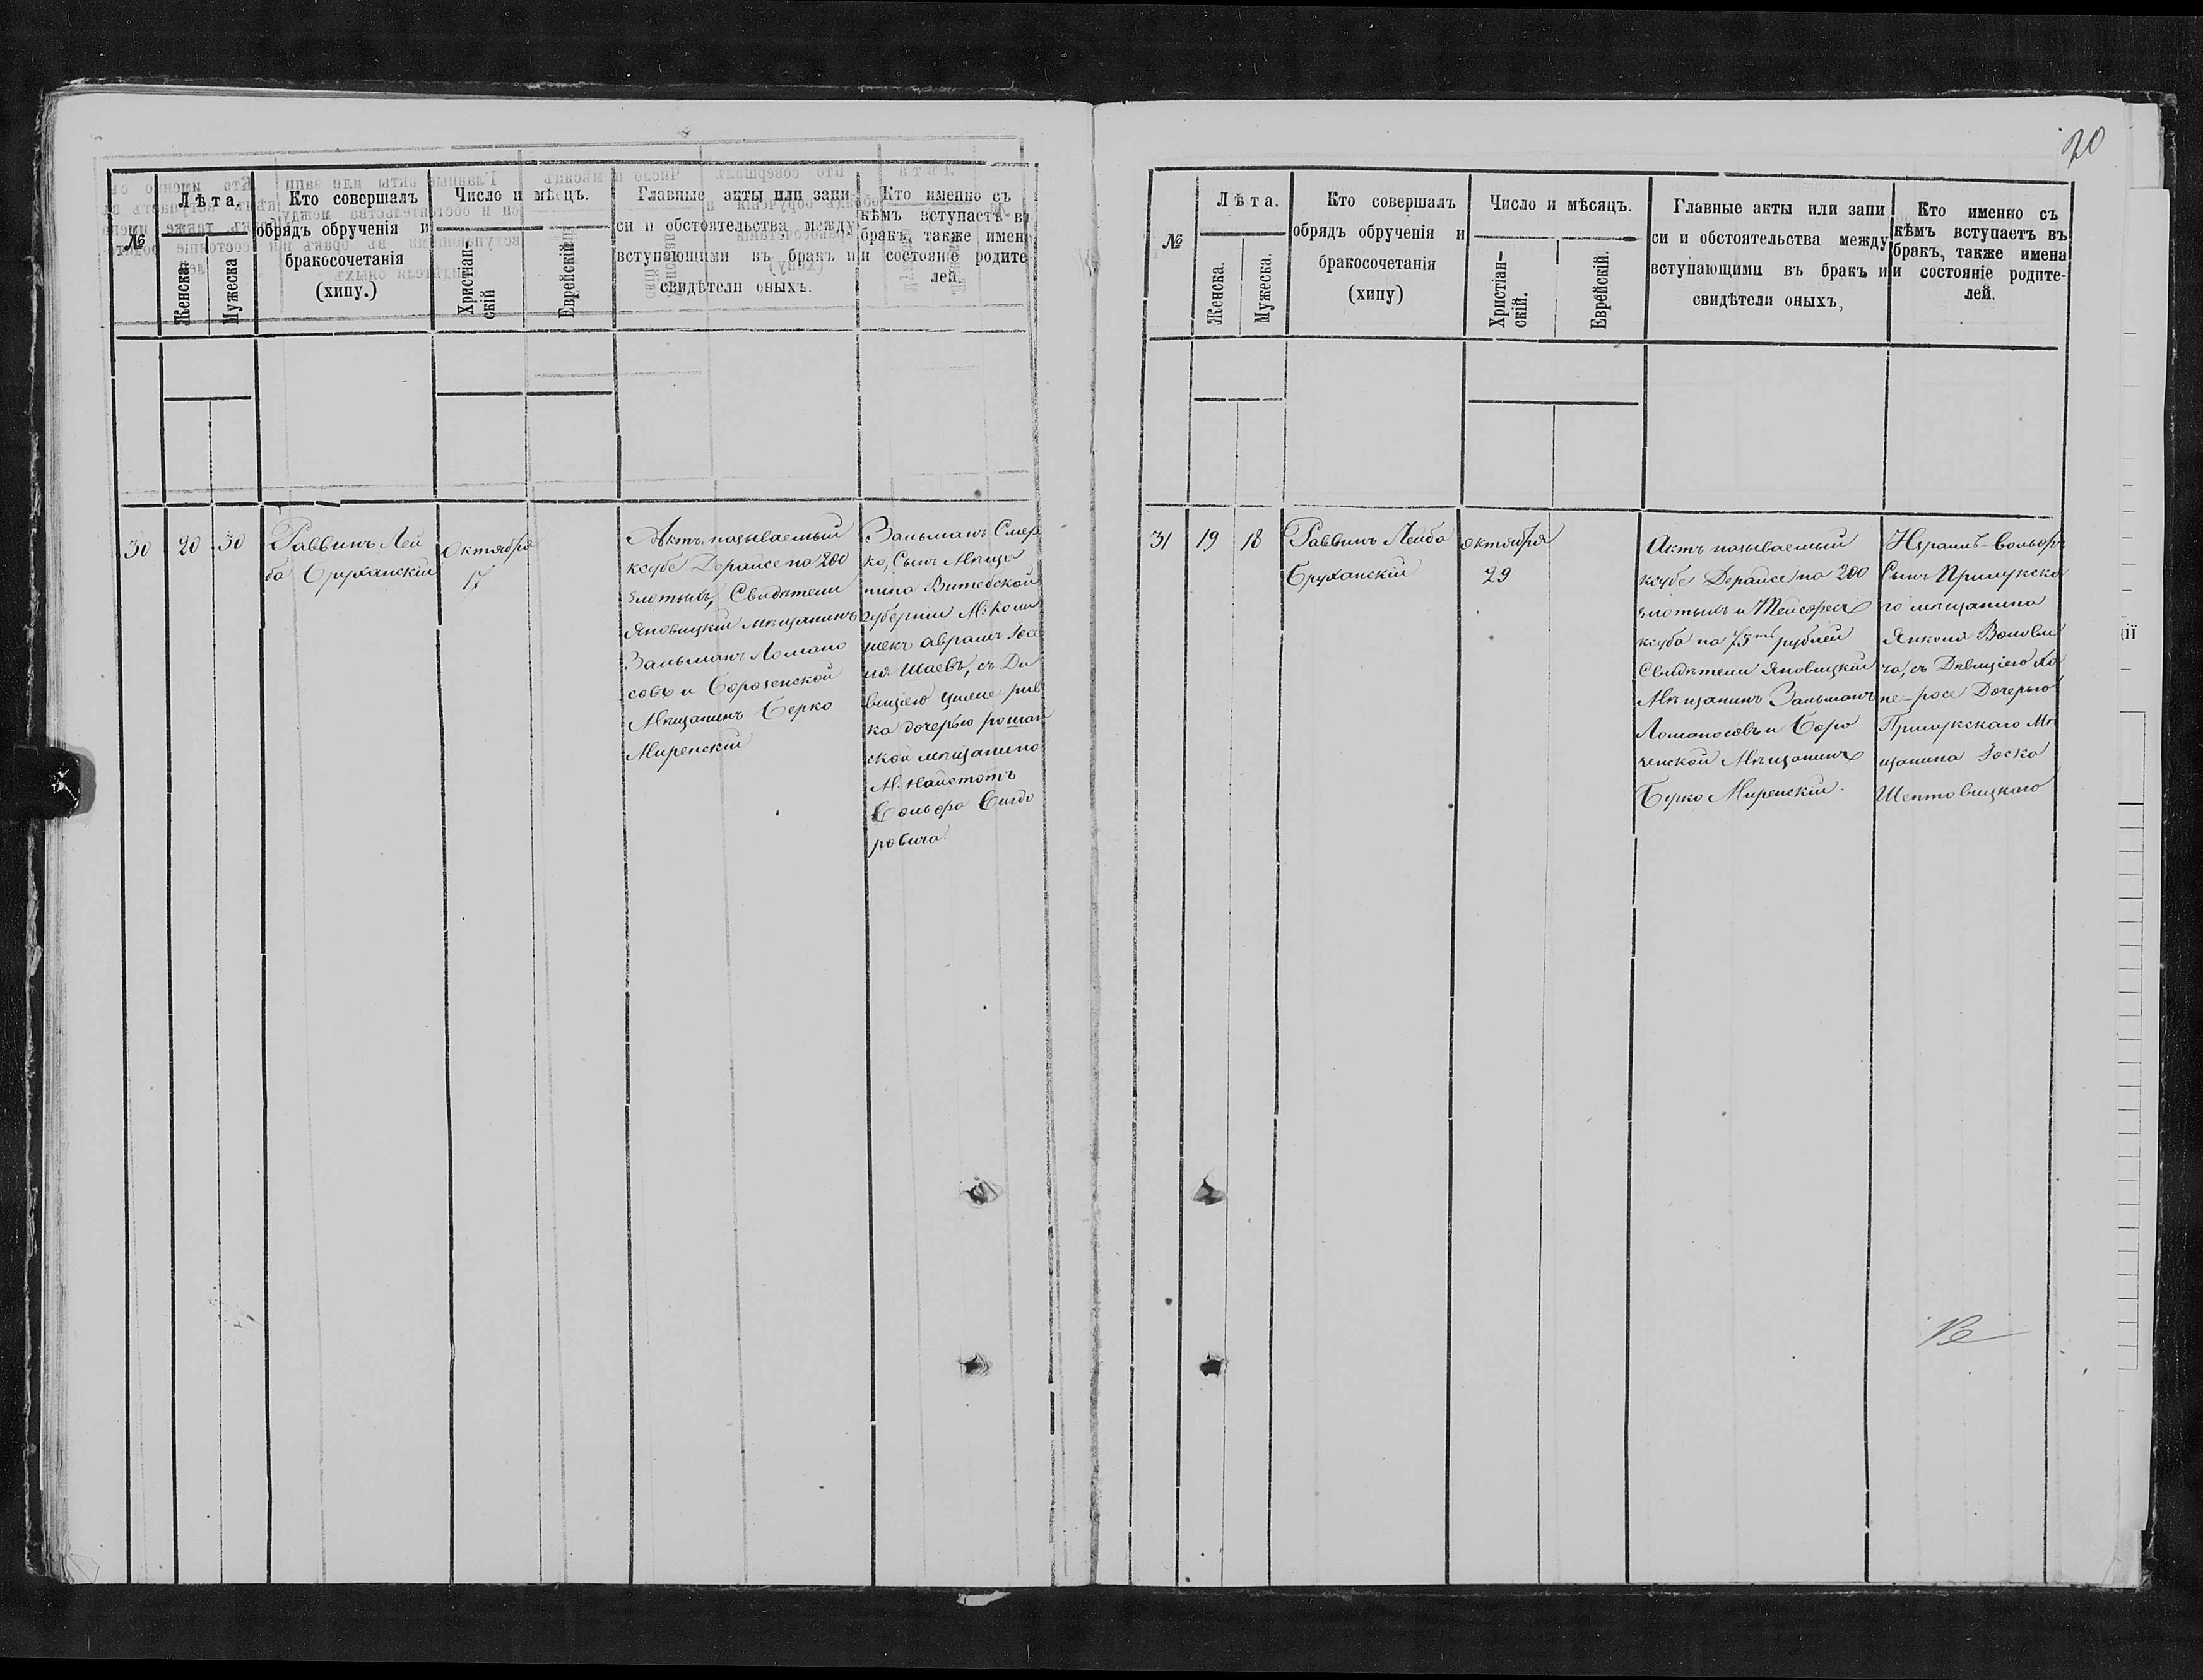 №
Лѣта.
Женска.
Мужеска
Кто совершалъ
обрядъ обрученія и
бракосочетанія
(хипу.)
Число и мѣсцъ.
Христіан-
скій
Еврейскій
Главные акты или запи
си и обстоятельства между
вступающими въ бракъ и
свидѣтели оныхъ.
Кто именно съ
кѣмъ вступаетъ въ
бракъ, также имен
и состояніе родите
лей.
30
20
30
Раввинъ Лей
ба Бруханскій
Октября
17
Актъ называемый
ксубе Дерайсе на 200
злотыхъ, Свидѣтели
Яновицкій мѣщанинъ
Зальманъ Ломоно
совъ и Борозенской
Мѣщанинъ Берко
Миренскій
Зальманъ Смер
ко, Сынъ Мѣща
нина Витебской
губерніи М:
Авраамъ
Шаевъ, съ Дѣ
вицею рив
ка дочерью
ской мѣщанина
М.
Вольфа
ровича
20
№
Лѣта.
Женска.
Мужеска.
Кто совершалъ
обрядъ обрученія и
бракосочетанія
(хипу)
Число и мѣсяцъ.
Христіан-
скій.
Еврейскій.
Главные акты или запи
си и обстоятельства между
вступающими въ бракъ и
свидѣтели оныхъ,
Кто именно съ
кѣмъ вступаетъ въ
бракъ, также имена
и состояніе родите-
лей.
31
19
18
Раввинъ Лейба
Бруханскій
Октября
29
Актъ называемый
ксубе Дерайсе на 200
злотыхъ и Тейсефесъ
ксуба на 75ть рублей
Свидѣтели Яновицкій
Мѣщанинъ Зальманъ
Ломоносовъ и Боро
зенской Мѣщанинъ
Берко Миренскій.
Израиль-Вольфъ
Сынъ Прилукска
го мѣщанина
Янкеля Волови
ча, съ Дѣвицею Ха
не-росе Дочерью
Прилукскаго Мѣ
щанина Іоска
Шептовицкаго